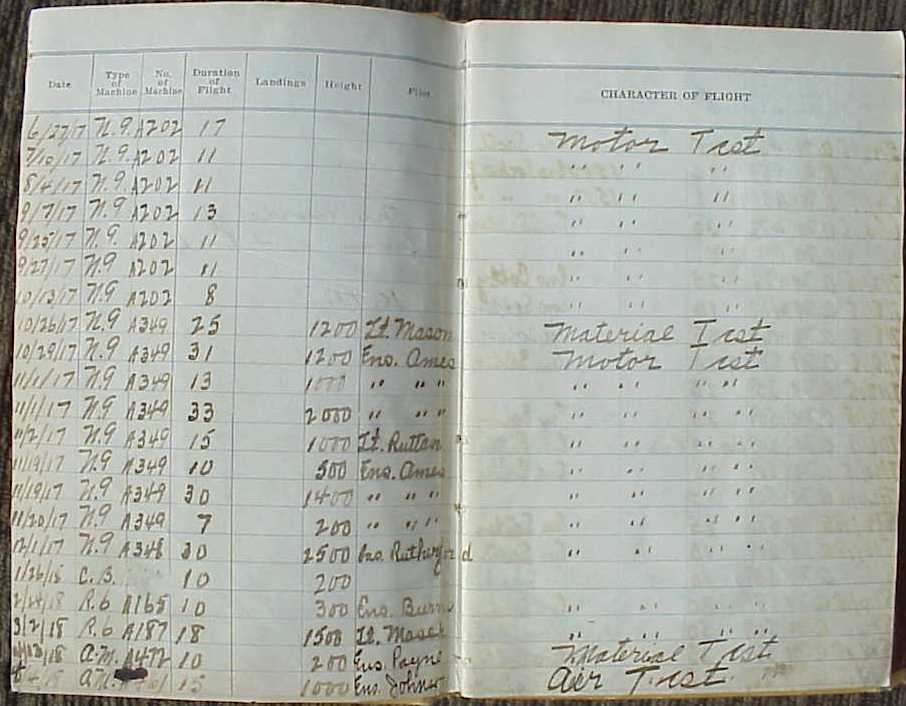 Date Type of Machine No. of Machine Duration of Flight Landings Height Pilot CHARACTER OF FLIGHT
6/27/17 N.9. A202 17 Motor Test
7/10/17 N.9. A202 11 " " "
8/4/17 N.9. A202 11 " " "
9/7/17 N.9. A202 13 " "
9/25/17 N.9. A202 11 " "
9/27/17 N.9 A202 11 " " "
10/13/17 N.9 A202 8 " " "
10/26/17 N.9 A349 25 1200 Lt. Mason Material Test
10/29/17 N.9 A349 31 1200 Ens. Ames Motor Test
11/1/17 N.9 A349 13 1000 " " " " " " "
11/1/17 N.9 A349 33 2000 " " " " " " "
11/2/17 N.9 A349 15 1000 Lt. Ruttan " " " "
11/19/17 N.9 A349 10 500 Ens. Ames " " " "
11/19/17 N.9 A349 30 1400 " " " " " " "
11/20/17 N.9 A349 7 200 " " " " " " "
12/1/17 N.9 A348 30 2500 Ens. Rutherford " " " "
1/26/18 C.B. 10 200
2/24/18 R.6 A165 10 300 Ens. Burns " " " "
3/2/18 R.6 A187 18 1500 Lt. Mason " " " "
/18 A.M. A472 10 200 Ens. Payne Material Test
A.M. 15 1000 Ens. Air Test